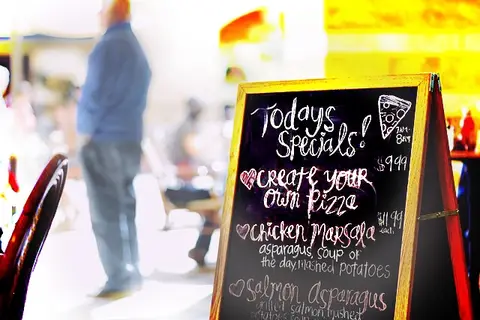 Today's
Specials!
CREATE YOUR
OWN PIZZA
$9.99
CHICKEN MARSALA
$11.99
each
asparagus, soup of
the day, mashed potatoes
SALMON ASPARAGUS
grilled salmon, mashed